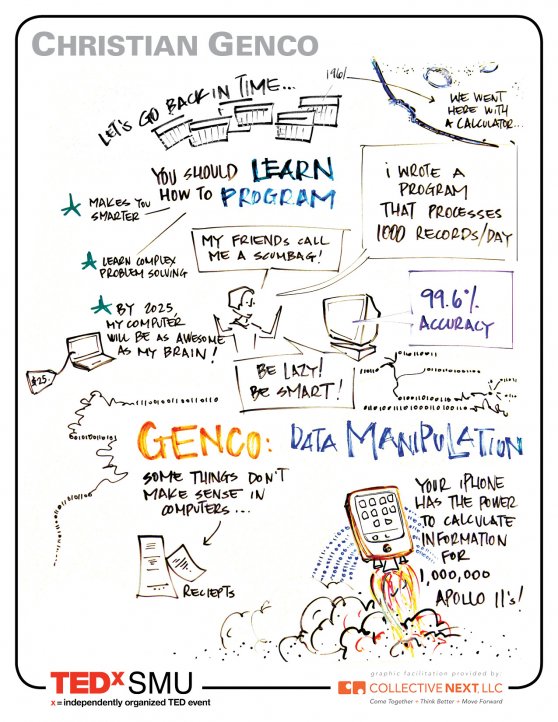 CHRISTIAN GENCO
LET'S GO BACK IN TIME...
1961
WE WENT
HERE WITH
A CALCULATOR...
YOU SHOULD LEARN
HOW TO PROGRAM
MAKES YOU
SMARTER
LEARN COMPLEX
PROBLEM SOLVING
BY 2025,
MY COMPUTER
WILL BE AS AWESOME
AS MY BRAIN!
$25.
i WROTE A
PROGRAM
THAT PROCESSES
1000 RECORDS/DAY
MY FRIENDS CALL
ME A SCUMBAG!
99.6%
ACCURACY
BE LAZY!
BE SMART!
GENCO: DATA MANIPULATION
SOME THINGS DON'T
MAKE SENSE IN
COMPUTERS...
RECIEPTS
YOUR iPHONE
HAS THE POWER
TO CALCULATE
INFORMATION
FOR
1,000,000
APOLLO 11's!
TEDxSMU
x = independently organized TED event
graphic facilitation provided by:
COLLECTIVE NEXT, LLC
Come Together + Think Better + Move Forward